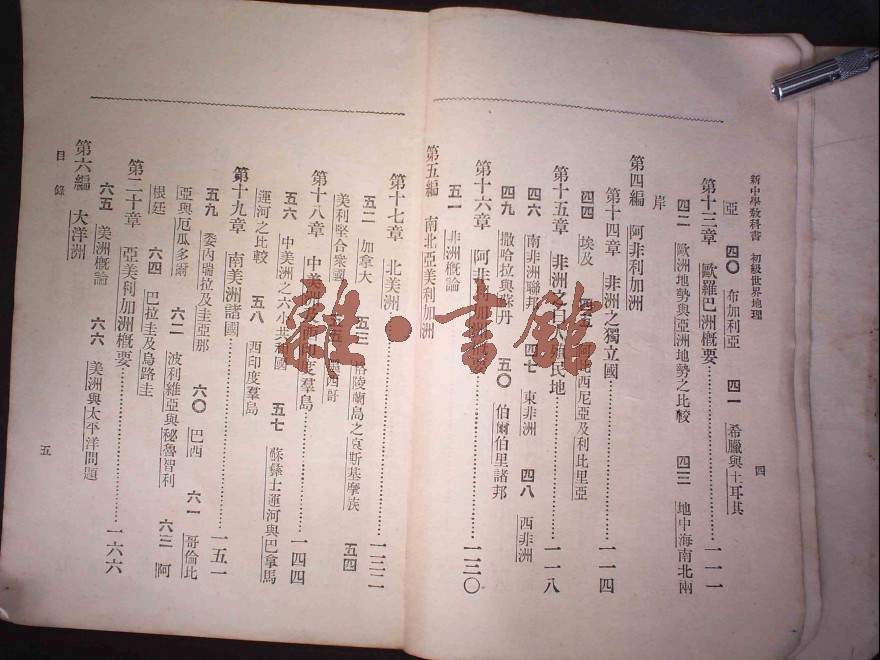 新中學教科書　初級世界地理
四
亞　四〇　布加利亞　四一　希臘與土耳其
第十三章　歐羅巴洲概要…………一一一
四二　歐洲地勢與亞洲地勢之比較　四三　地中海南北兩
岸
第四編　阿非利加洲
第十四章　非洲之獨立國…………一一四
四四　埃及　四五　阿比西尼亞及利比里亞
第十五章　非洲之白人殖民地…………一一八
四六　南非洲聯邦　四七　東非洲　四八　西非洲
四九　撒哈拉與蘇丹　五〇　伯爾伯里諸邦
第十六章　阿非利加洲概要…………一三〇
五一　非洲概論
第五編　南北亞美利加洲
第十七章　北美洲…………一三二
五二　加拿大　五三　格陵蘭島之哀斯基摩族　五四
美利堅合衆國　五五　墨西哥
第十八章　中美洲及西印度羣島…………一四四
五六　中美洲之六小共和國　五七　蘇彝士運河與巴拿馬
運河之比較　五八　西印度羣島
第十九章　南美洲諸國…………一五一
五九　委內瑞拉及圭亞那　六〇　巴西　六一　哥倫比
亞與厄瓜多爾　六二　波利維亞與秘魯智利　六三　阿
根廷　六四　巴拉圭及烏路圭
第二十章　亞美利加洲概要…………一六六
六五　美洲概論　六六　美洲與太平洋問題
第六編　大洋洲
目錄
五
雜·書館